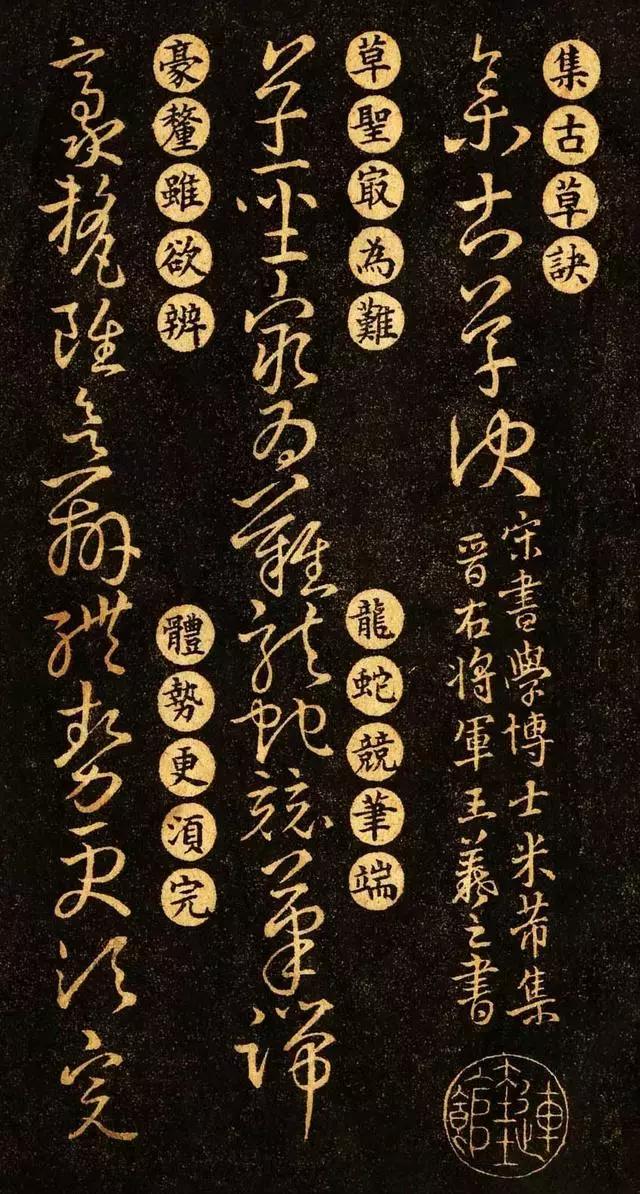 集古草訣
集古草訣
宋書學博士米芾集
晉右將軍王羲之書
草聖冣為難 龍蛇競筆端
草聖冣為難龍蛇競筆端
豪釐雖欲辨 體勢更湏完
豪釐雖欲辨體勢更湏完